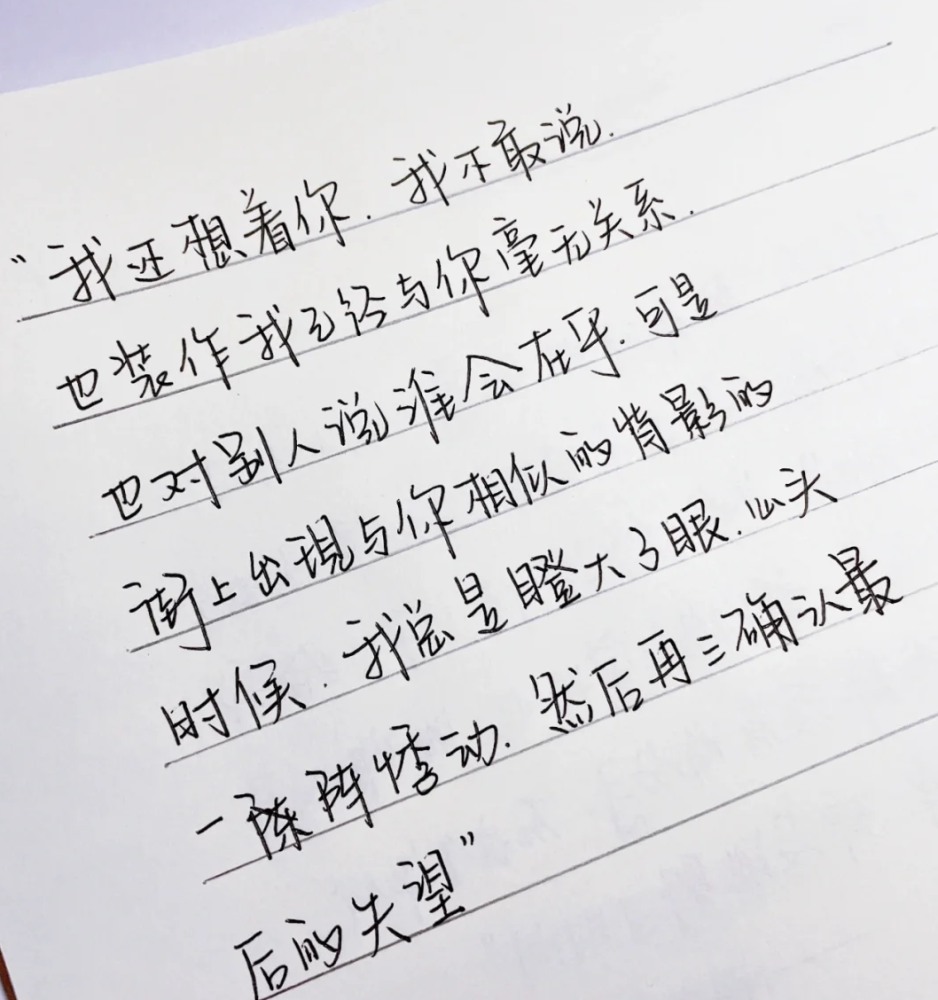 “我还想着你.我不敢说.
也装作我已经与你毫无关系.
也对别人说谁会在乎.可是
街上出現与你相似的背影的
时候.我总是瞪大了眼.心头
一陈阵悸动.然后再三确认最
后的失望”